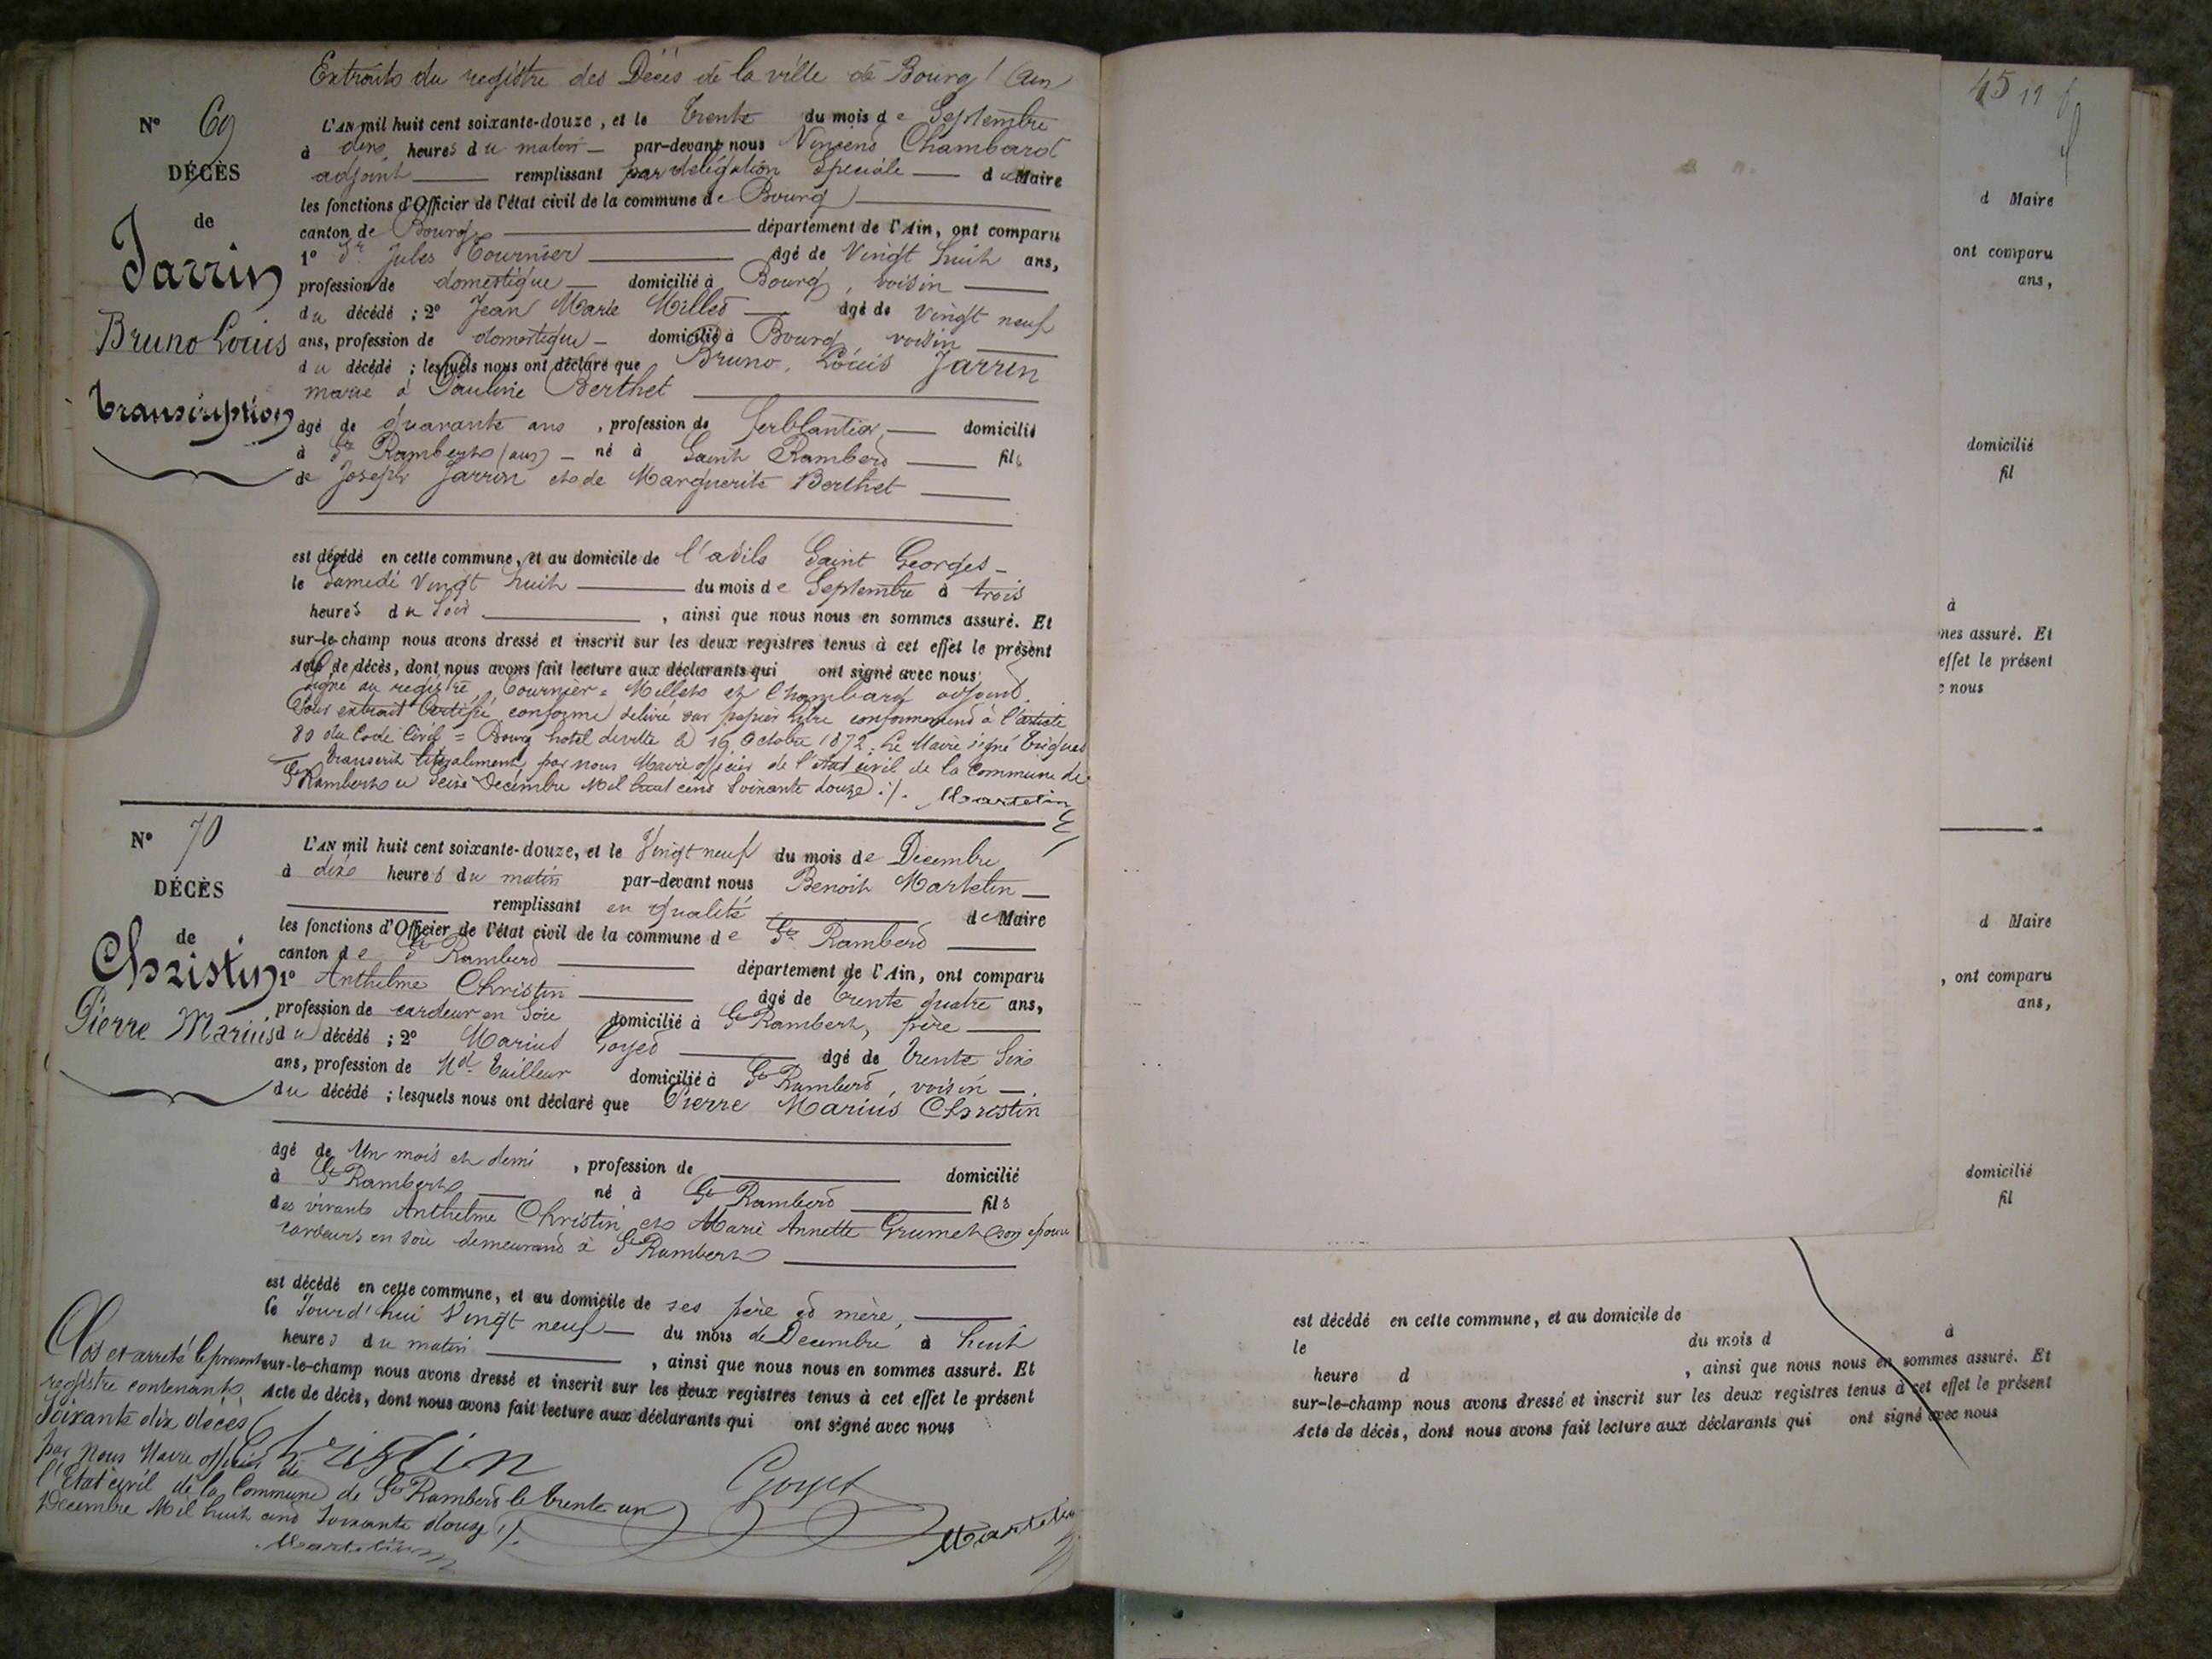 Extraits du registre des Décès de la ville de Bourg (Ain
N° 69
DÉCÈS
de
Jarrin
Bruno Louis
Transcription
L'AN mil huit cent soixante-douze, et le Trente du mois de Septembre
à dix heures du matin — par-devant nous Vincent Chambard
adjoint — remplissant par délégation Spéciale — du Maire
les fonctions d'Officier de l'état civil de la commune de Bourg
canton de Bourg — département de l'Ain, ont comparu
1° Sr Jules Tournier — âgé de Vingt huit ans,
profession de domestique — domicilié à Bourg, voisin —
du décédé ; 2° Jean Marie Millet — âgé de vingt neuf
ans, profession de domestique — domicilié à Bourg, voisin —
du décédé ; lesquels nous ont déclaré que Bruno, Louis Jarrin
marié à Pauline Berthet —
âgé de quarante ans, profession de ferblantier — domicilié
à St Rambert (ain) — né à Saint Rambert — fils
de Joseph Jarrin et de Marguerite Berthet —
est décédé en cette commune, et au domicile de l'asile Saint Georges —
le Samedi Vingt huit — du mois de Septembre à trois
heures du soir —, ainsi que nous nous en sommes assuré. Et
sur-le-champ nous avons dressé et inscrit sur les deux registres tenus à cet effet le présent
Acte de décès, dont nous avons fait lecture aux déclarants qui ont signé avec nous
Signé au registre, Tournier = Millet et Chambard adjoint.
Pour extrait Certifié conforme délivré sur papier libre conformément à l'article
80 du Code Civil = Bourg hotel de ville le 19 Octobre 1872. Le Maire signé
Transcrit par nous Maire officier de l'état civil de la Commune de
St Rambert le Seize Décembre Mil huit cent Soixante douze ./. Martelin
N° 70
DÉCÈS
de
Christin
Pierre Marius
L'AN mil huit cent soixante-douze, et le Vingt neuf du mois de Décembre
à dix heures du matin par-devant nous Benoit Martelin —
— remplissant en qualité — de Maire
les fonctions d'Officier de l'état civil de la commune de St Rambert —
canton de St Rambert — département de l'Ain, ont comparu
1° Anthelme Christin — âgé de Trente quatre ans,
profession de cardeur en Soie domicilié à St Rambert, père —
du décédé ; 2° Marius Goyet — âgé de Trente Six
ans, profession de Md Tailleur domicilié à St Rambert, voisin —
du décédé ; lesquels nous ont déclaré que Pierre Marius Christin
âgé de Un mois et demi, profession de — domicilié
à St Rambert — né à St Rambert — fils
des vivants Anthelme Christin et Marie Annette Grumet son épouse
cardeurs en soie demeurant à St Rambert —
est décédé en cette commune, et au domicile de ses père et mère, —
le Jourd'hui Vingt neuf — du mois de Décembre à huit
heures du matin —, ainsi que nous nous en sommes assuré. Et
sur-le-champ nous avons dressé et inscrit sur les deux registres tenus à cet effet le présent
Acte de décès, dont nous avons fait lecture aux déclarants qui ont signé avec nous
Christin
Goyet
Martelin
Clos et arreté le present
registre contenant
Soixante dix décès
par nous Maire officier de
l'Etat civil de la Commune de St Rambert le trente un
Décembre Mil huit cent Soixante douze ./.
Martelin
45
d Maire
ont comparu
ans,
domicilié
fil
à
mes assuré. Et
effet le présent
c nous
d Maire
, ont comparu
ans,
domicilié
fil
est décédé en cette commune, et au domicile de
le du mois d à
heure d , ainsi que nous nous en sommes assuré. Et
sur-le-champ nous avons dressé et inscrit sur les deux registres tenus à cet effet le présent
Acte de décès, dont nous avons fait lecture aux déclarants qui ont signé avec nous